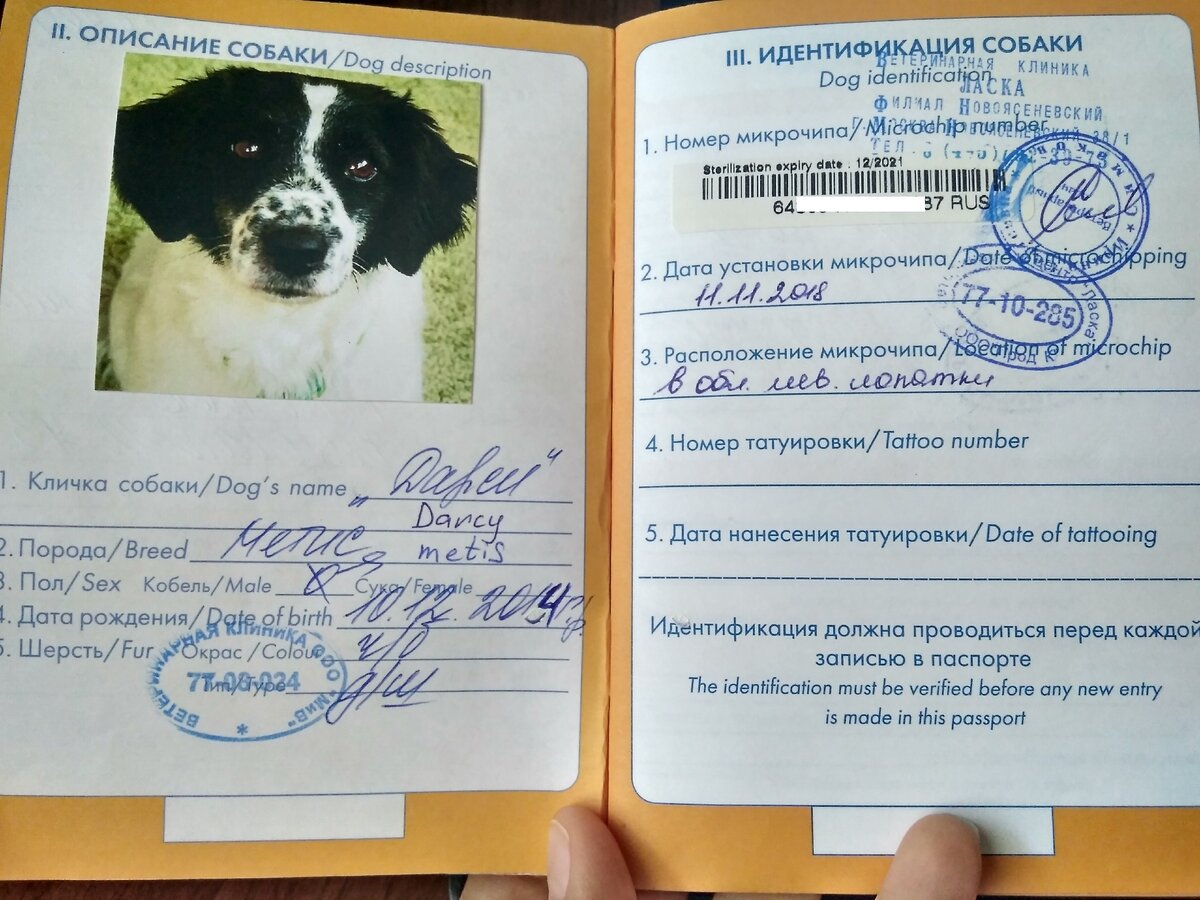 II. ОПИСАНИЕ СОБАКИ/Dog description
1. Кличка собаки/Dog's name „Дарси"
Darcy
2. Порода/Breed Метис metis
3. Пол/Sex Кобель/Male Сука/Female
4. Дата рождения/Date of birth 10.12.2014
5. Шерсть/Fur Окрас/Colour
Тип/Type д/ш
ВЕТЕРИНАРНАЯ КЛИНИКА ООО "МиВ"
77-08-034
III. ИДЕНТИФИКАЦИЯ СОБАКИ
Dog identification
ВЕТЕРИНАРНАЯ КЛИНИКА
ЛАСКА
ФИЛИАЛ НОВОЯСЕНЕВСКИЙ
1. Номер микрочипа/Microchip number
Sterilization expiry date : 12/2021
87 RUS
2. Дата установки микрочипа/Date of microchipping
11.11.2018
77-10-285
3. Расположение микрочипа/Location of microchip
в обл. лев. лопатки
4. Номер татуировки/Tattoo number
5. Дата нанесения татуировки/Date of tattooing
Идентификация должна проводиться перед каждой
записью в паспорте
The identification must be verified before any new entry
is made in this passport